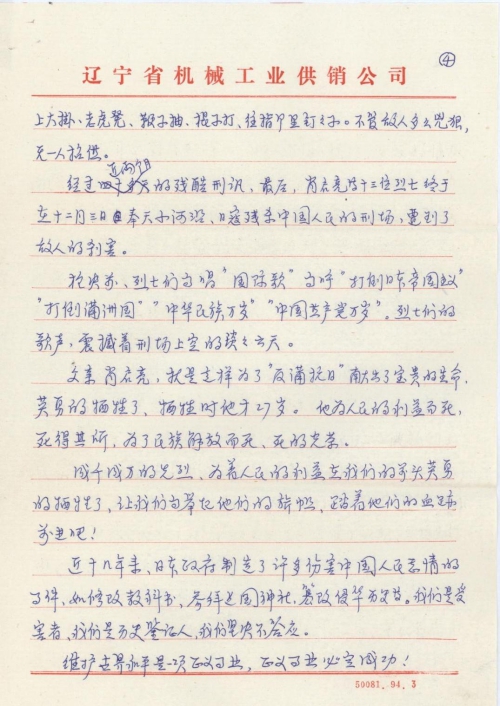 ④
辽宁省机械工业供销公司
上大掛、老虎凳、鞭子抽、棍子打、往指甲里钉钉子。不管敌人多么兇狠,
无一人招供。
近两个月
经过的残酷刑讯、最后,肖右亮与十三位烈士终于
在十二月三日 奉天小河沿、日寇残杀中国人民的刑场,遭到了
敌人的刹害。
枪决前、烈士们高唱“国际歌”高呼“打倒日本帝国主义”
“打倒满洲国”“中华民族万岁”“中国共产党万岁”。烈士们的
歌声,震撼着刑场上空的云天。
父亲肖右亮,就是这样为了“反满抗日”献出了宝贵的生命,
英勇的牺牲了、牺牲时他才27岁。他为人民的利益而死,
死得其所,为了民族解放而死、死的光荣。
成千成万的先烈、为着人民的利益在我们的前头英勇
的牺牲了,让我们高举起他们的旗帜,踏着他们的血迹
前进吧!
近十几年来、日本政府制造了许多伤害中国人民感情的
事件,如修改教科书、参拜靖国神社、篡改侵华历史等。我们是受
害者,我们是历史鉴证人,我们坚决不答应。
维护世界和平是一项正义事业,正义事业必定成功!
50081.94.3